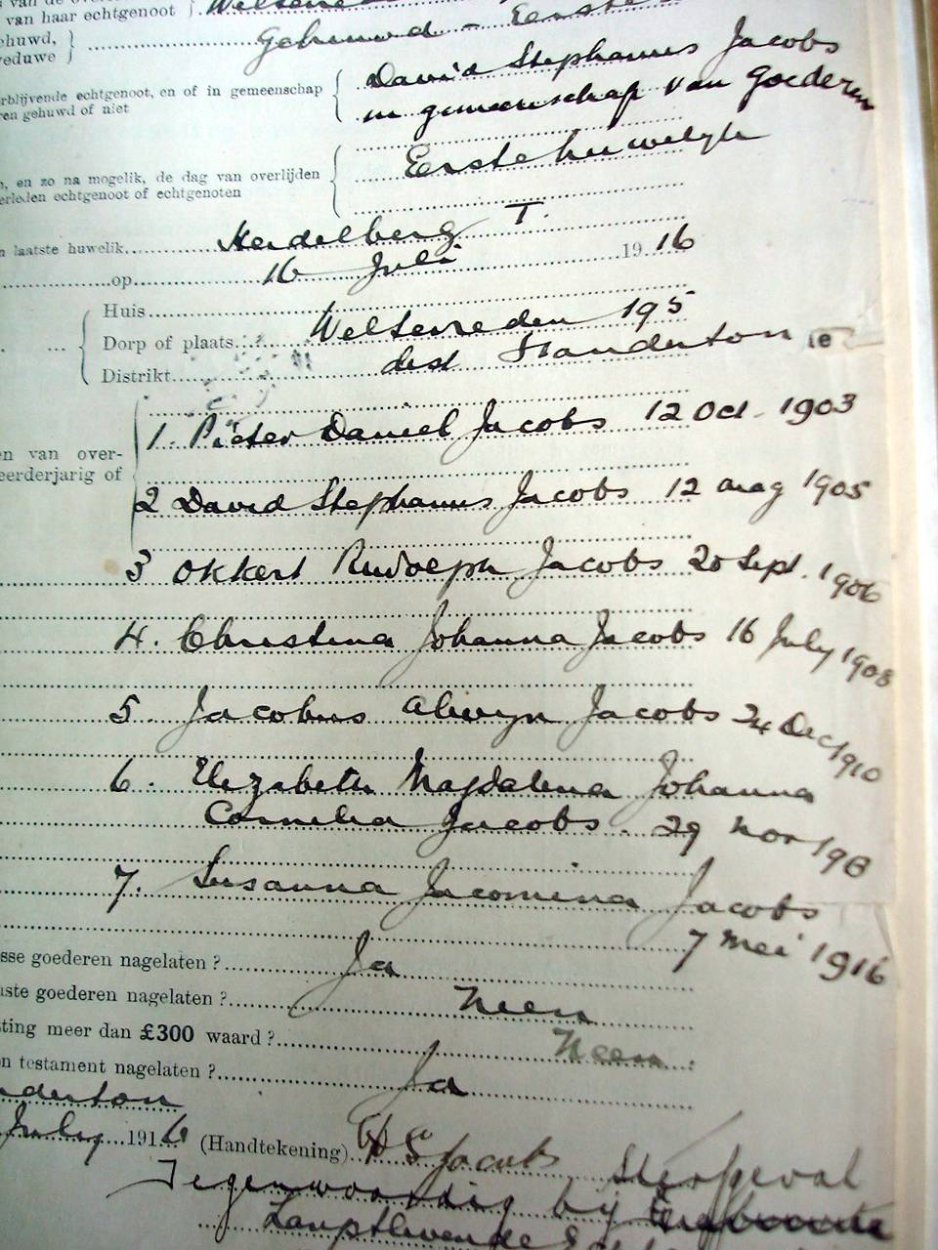 van haar echtgenoot } Weltevreden
ehuwd, } Gehuwd - Eerste
eduwe
David Stephanus Jacobs
erblijvende echtgenoot, en of in gemeenschap
ren gehuwd of niet
in gemeenschap van Goederen
Eerste huwelyk
n, en zo na mogelik, de dag van overlijden
erleden echtgenoot of echtgenoten
n laatste huwelik Heidelberg T.
op 16 Juli 1916
Huis
Dorp of plaats Weltevreden 195
Distrikt dist Standerton
1. Pieter Daniel Jacobs 12 Oct - 1903
en van over-
eerderjarig of
2 David Stephanus Jacobs 12 aug 1905
3 Okkert Rudolph Jacobs 20 Sept. 1906
4. Christina Johanna Jacobs 16 July 1908
5. Jacobus Alwyn Jacobs 24 Dec 1910
6. Elizabeth Magdalena Johanna
Cornelia Jacobs. 29 Nov 1913
7. Susanna Jacomina Jacobs
7 Mei 1916
sse goederen nagelaten ? Ja
uste goederen nagelaten ? Neen
ting meer dan £300 waard ? Neen
n testament nagelaten ? Ja
derton
July 1916 (Handtekening) D S Jacobs
Sterfgeval
Tegenwoordig by
Langstlevende